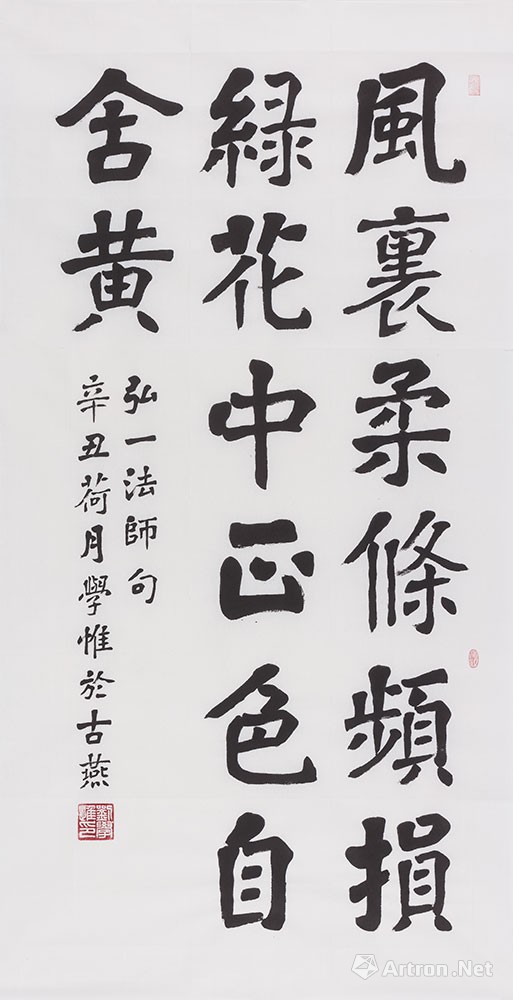 風裏柔條頻損
綠花中正色自
含黄
弘一法師句
辛丑荷月學惟於古燕
Artron.Net